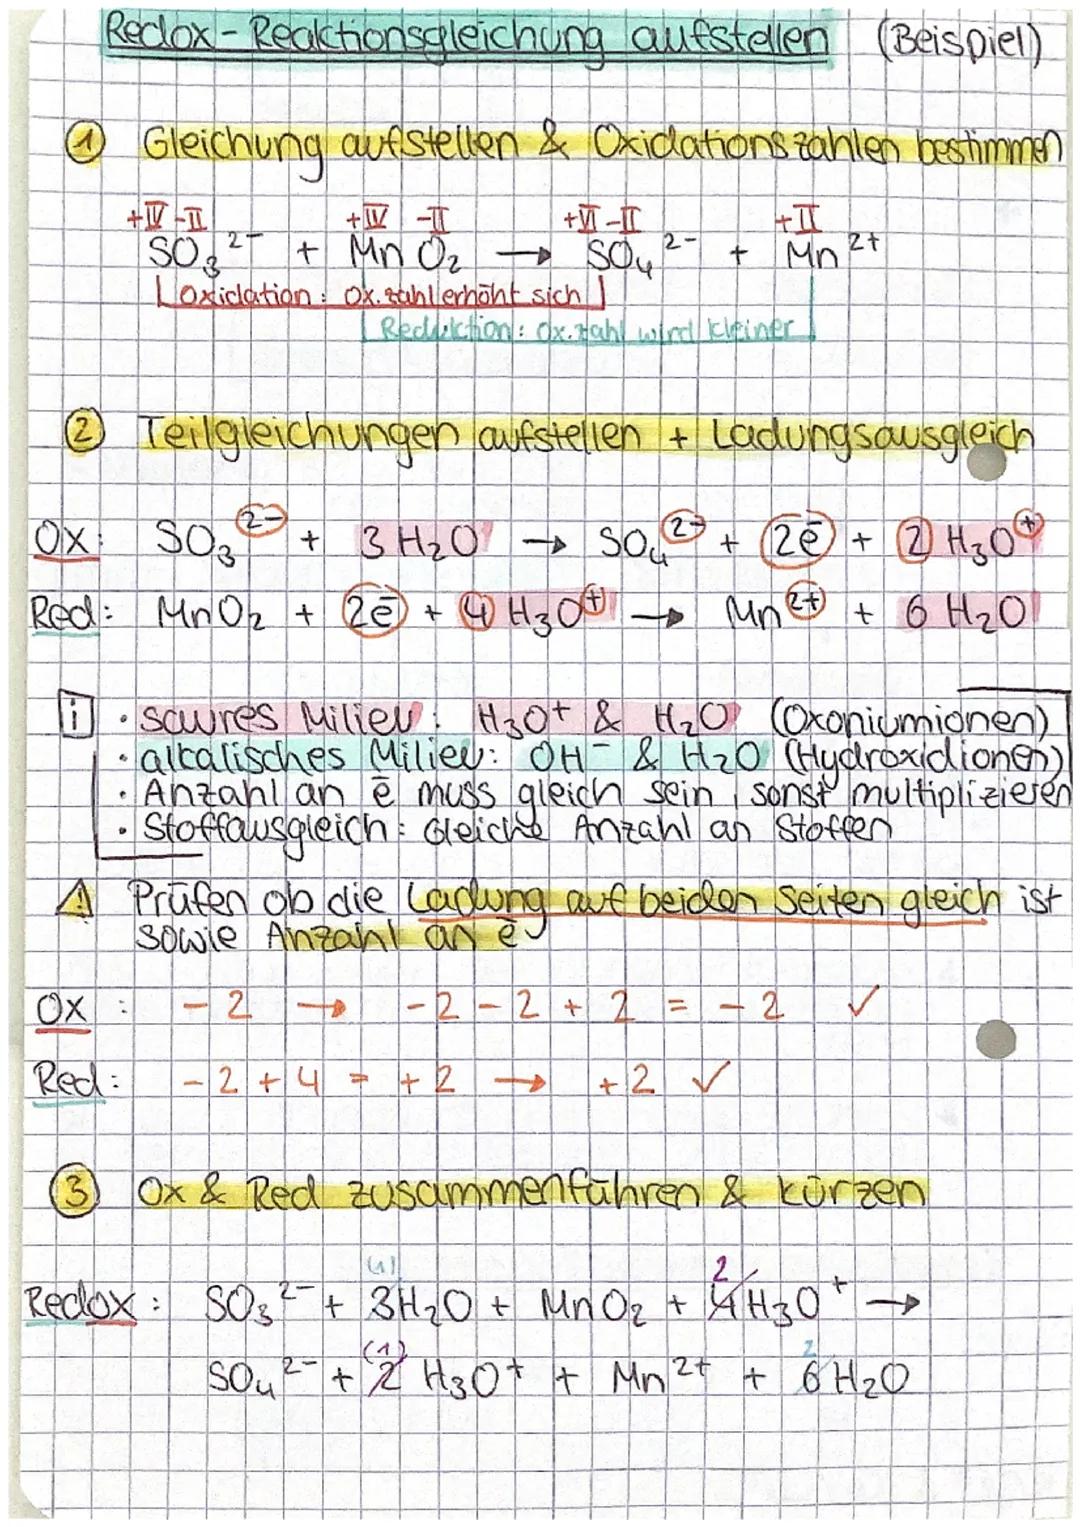 Redox-Reaktionsgleichung aufstellen (Beispiel)
① Gleichung aufstellen & Oxidationszahlen bestimmen
+IV -II +IV -II +VI -II +II
SO₃²⁻ + MnO₂ → SO₄²⁻ + Mn²⁺
Oxidation: Ox.zahl erhöht sich
Reduktion: Ox.zahl wird kleiner
② Teilgleichungen aufstellen + Ladungsausgleich
Ox: SO₃²⁻ + 3 H₂O → SO₄²⁻ + 2e̅ + 2 H₃O⁺
Red: MnO₂ + 2e̅ + 4 H₃O⁺ → Mn²⁺ + 6 H₂O
i · saures Milieu: H₃O⁺ & H₂O (Oxoniumionen)
· alkalisches Milieu: OH⁻ & H₂O (Hydroxidionen)
· Anzahl an e̅ muss gleich sein, sonst multiplizieren
· Stoffausgleich: Gleiche Anzahl an Stoffen
⚠ Prüfen ob die Ladung auf beiden Seiten gleich ist
sowie Anzahl an e̅
Ox: -2 → -2-2+2 = -2 ✓
Red: -2+4 = +2 → +2 ✓
③ Ox & Red zusammenführen & kürzen
(1) 2
Redox: SO₃²⁻ + 3H₂O + MnO₂ + 4H₃O⁺ →
(1) 2
SO₄²⁻ + 2 H₃O⁺ + Mn²⁺ + 6H₂O